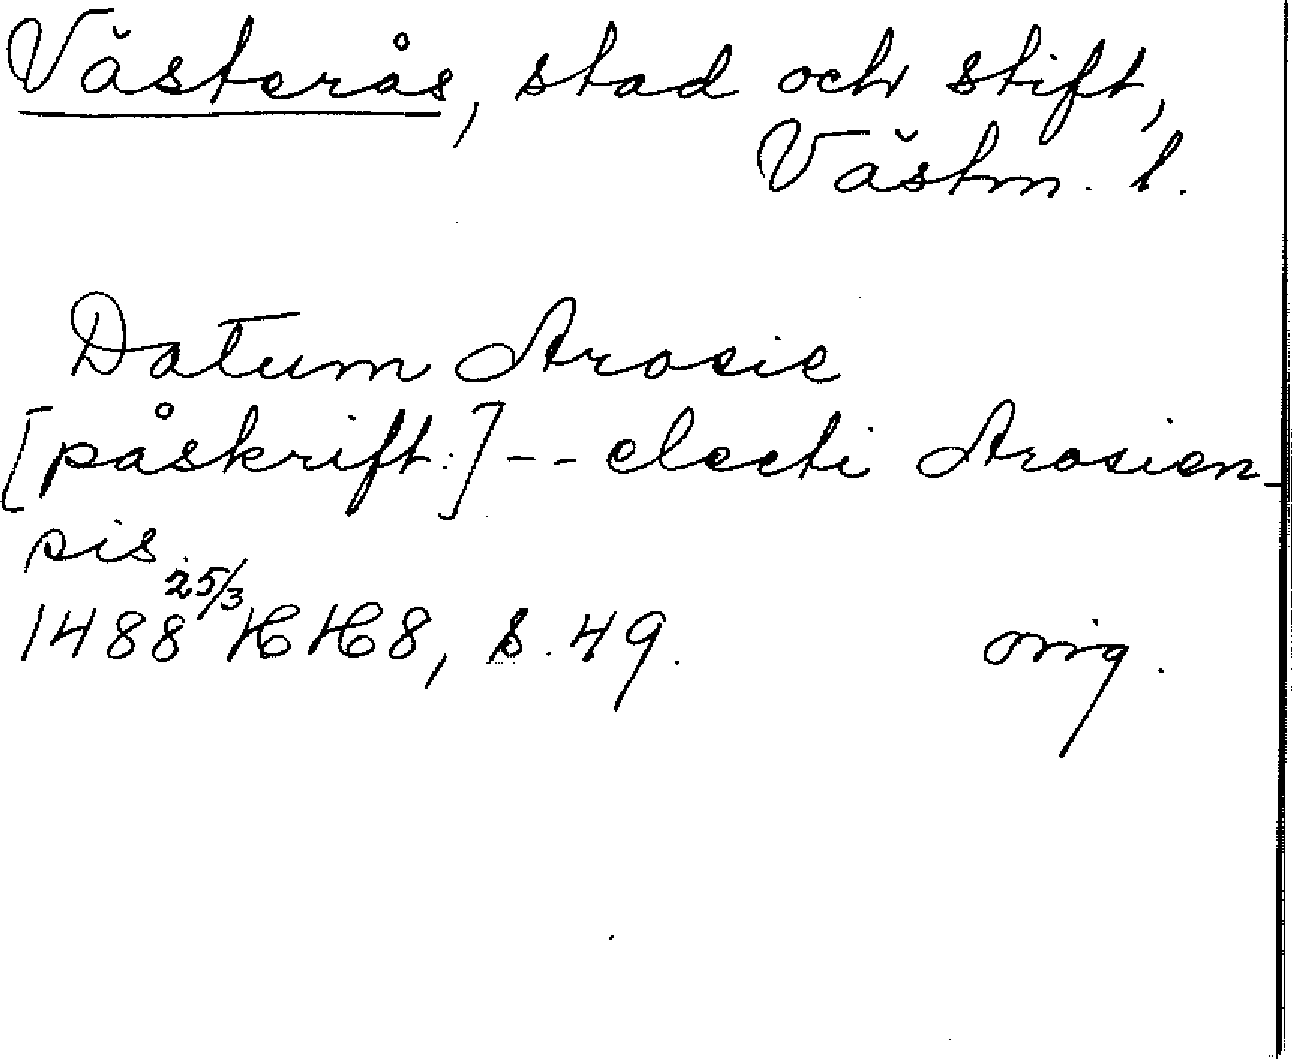 Västerås, stad och stift,
Västm. l.
Datum Arosie
[påskrift:] -- electi Arosien-
sis
1488 25/3 HH 8, s. 49. orig.